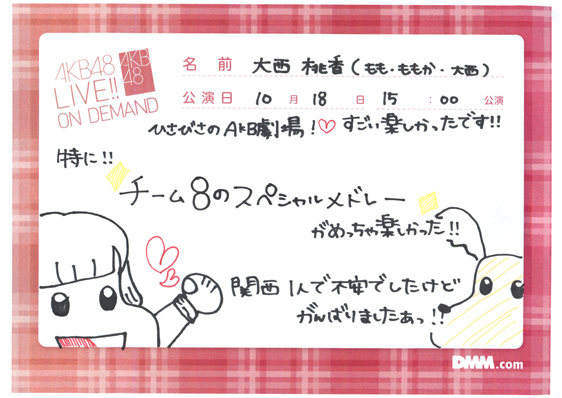 AKB48
LIVE!!
ON DEMAND
AKB
48
名 前 大西 桃香(もも・ももか・大西)
公演日 10 月 18 日 15 : 00 公演
ひさびさのAKB劇場!♡すごい楽しかったです!!
特に!!
チーム8のスペシャルメドレー
がめっちゃ楽しかった!!
関西1人で不安でしたけど
がんばりましたぁっ!!
DMM.com